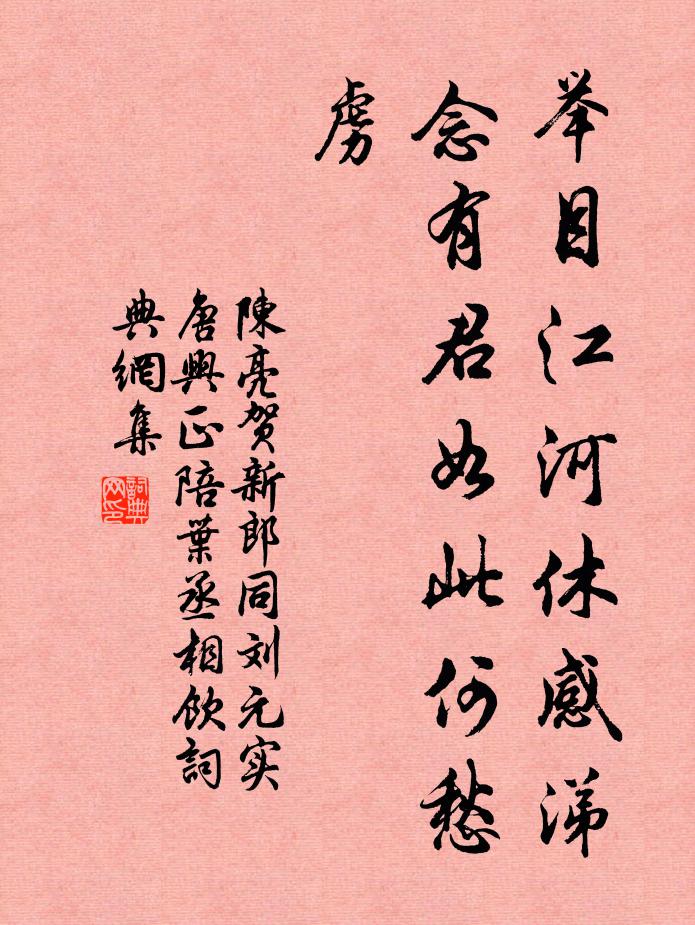 举目江河休感涕
念有君如此何愁
虏
陳亮贺新郎同刘元实
唐興正陪葉丞相饮詞
典網集
詞典
网印